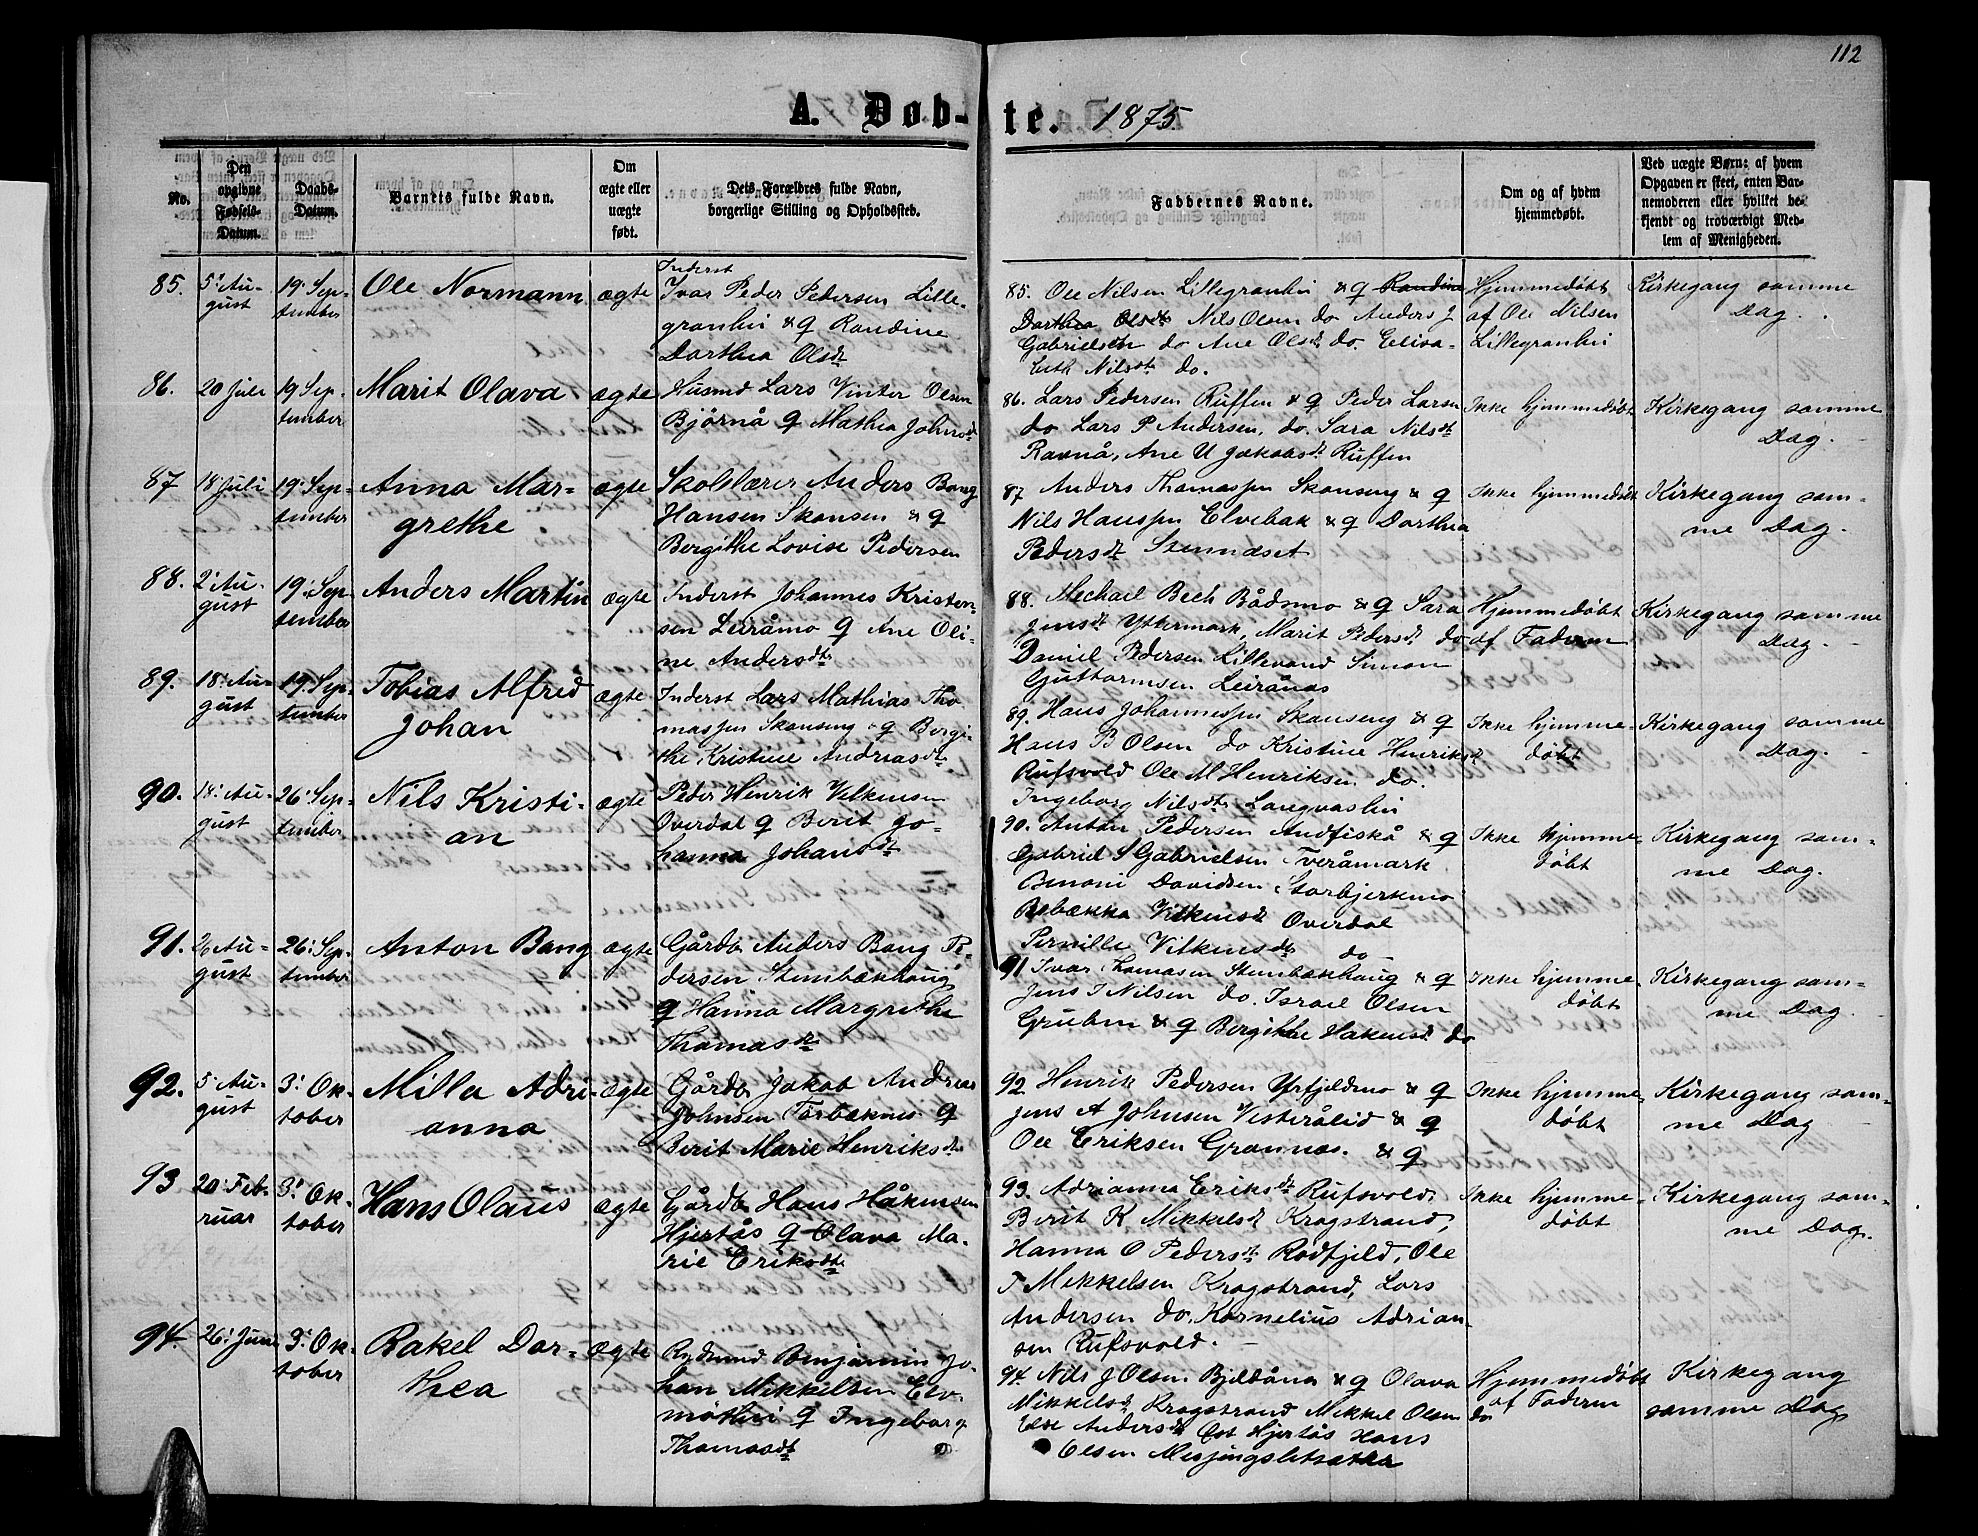 112
A. Døb-
te. 1875
No.
Den
opgivne
Fødsels-
Datum.
Daabs-
Datum.
Barnets fulde Navn.
Om
ægte eller
uægte
født.
Dets Forældres fulde Navn,
borgerlige Stilling og Opholdssted.
Faddernes Navne.
Om og af hvem
hjemmedøbt.
Ved uægte Børn: af hvem
Opgaven er skeet, enten Bar-
nemoderen eller hvilket be-
kjendt og troværdigt Med-
lem af Menigheden.
85.
5' Au-
gust
19' Sep-
tember
Ole Normann
ægte
Inderst
Ivar Peder Pedersen Lille-
granlii & q Randine
Dorthea Olsdt
85. Ole Nilsen Lillegranlii & q Randine
Dorthea Olsdt Nils Olsen do Anders J
Gabrielsen do Ane Olsdt do. Eliva-
Nilsdt do.
Hjemmedøbt
af Ole Nilsen
Lillegranlii
Kirkegang samme
Dag.
86.
20 Juli
19 Sep-
tember
Marit Olava
ægte
Husmd Lars Vinter Olsen
Bjørnå q Mathea Johnsdt
86. Lars Pedersen Ruffen & q Peder Larsen
do Lars P Andersen, do. Sara Nilsdt
Ravnå, Ane U Jakobsdt Ruffen
Ikke hjemmedøbt
Kirkegang samme
Dag.
87
18' Juli
19' Sep-
tember
Anna Mar-
grethe
ægte
Skolelærer Anders Bang
Hansen Skansen & q
Bergithe Lovise Pedersen
87 Anders Thomassen Skanseng & q
Nils Hanssen Elvebak & q Dorthea
Pedersdt Stennæset
Ikke hjemmedøbt
Kirkegang sam-
me Dag.
88.
2' Au-
gust
19' Sep-
tember
Anders Martin
ægte
Inderst Johannes Kristen-
sen Leiråmo q Ane Oli-
ne Andersdtr
88. Mechael Bech Bådsmo & q Sara
Jensdt Yttermark, Marit Pedersdt do
Daniel Pedersen Lillevand Simon
Guttormsen Leirånas
Hjemmedøbt
af Faderen
Kirkegang samme
Dag.
89.
18' Au-
gust
19' Sep-
tember
Tobias Alfred
Johan
ægte
Inderst Lars Mathias Tho-
massen Skanseng & q Bergi-
the Kristine Andreasdt
89. Hans Johannessen Skanseng & q
Hans B Olsen do Kristine Henriksdt
Rufsvold Ole M Henriksen do.
Ingeborg Nilsdtr Langvaslii
Ikke hjemme-
døbt
Kirkegang samme
Dag.
90.
18' Au-
gust
26' Sep-
tember
Nils Kristi-
an
ægte
Peder Henrik Vilkensen
Overdal q Berit Jo-
hanna Johansdt
90. Anton Pedersen Andfiskå & q
Gabriel S Gabrielsen Tveråmark
Benoni Davidsen Storbjerkmo
Rebækka Vilkensdt Overdal
Pernille Vilkensdtr do
Ikke hjemme-
døbt
Kirkegang sam-
me Dag.
91.
26 Au-
gust
26' Sep-
tember
Anton Bang
ægte
Gårdb. Anders Bang P-
dersen Stenbækhaug
q Hanna Margrethe
Thomasdtr
91 Ivar Thomasen Stenbækhaug & q
Jens J Nilsen do. Israel Olsen
Gruben & q Bergithe Hakensdt do
Ikke hjemme-
døbt
Kirkegang sam-
me Dag.
92.
5' Au-
gust
3' Ok-
tober
Milla Adri-
anna
ægte
Gårdb. Jakob Andreas
Johnsen Torbæknes q
Berit Marie Henriksdtr
92 Henrik Pedersen Yrfjeldmo & q
Jens A Johnsen Vesterålid & q
Ole Eriksen Grannas. & q
Ikke hjemme-
døbt
Kirkegang sam-
me Dag
93
20' Feb-
ruar
3' Ok-
tober
Hans Olaus
ægte
Gårdb. Hans Håkensen
Hjertås q Olava Ma-
rie Eriksdtr
93. Adrianna Eriksdtr Rufsvold,
Berit K Mikkelsdt Kragstrand,
Hanna O Pedersdtr Rødfjeld, Ole
T Mikkelsen Kragstrand, Lars
Andersen do. Kornelius Adrian-
sen Rufsvold.
Ikke hjemme-
døbt
Kirkegang sam-
me Dag.
94.
26' Juni
3' Ok-
tober
Rakel Dor-
thea
ægte
Rydmnd Benjamin Jo-
han Mikkelsen Elv-
møthii q Ingeborg
Thomasdt
94. Nils J Olsen Bjeldånes & q Olava
Mikkelsdt Kragstrand Mikkel Olsen do
Else Andersdt Øst Hjertås Hans
Olsen Mesjingsletsæter
Hjemmedøbt
af Faderen
Kirkegang
samme Dag